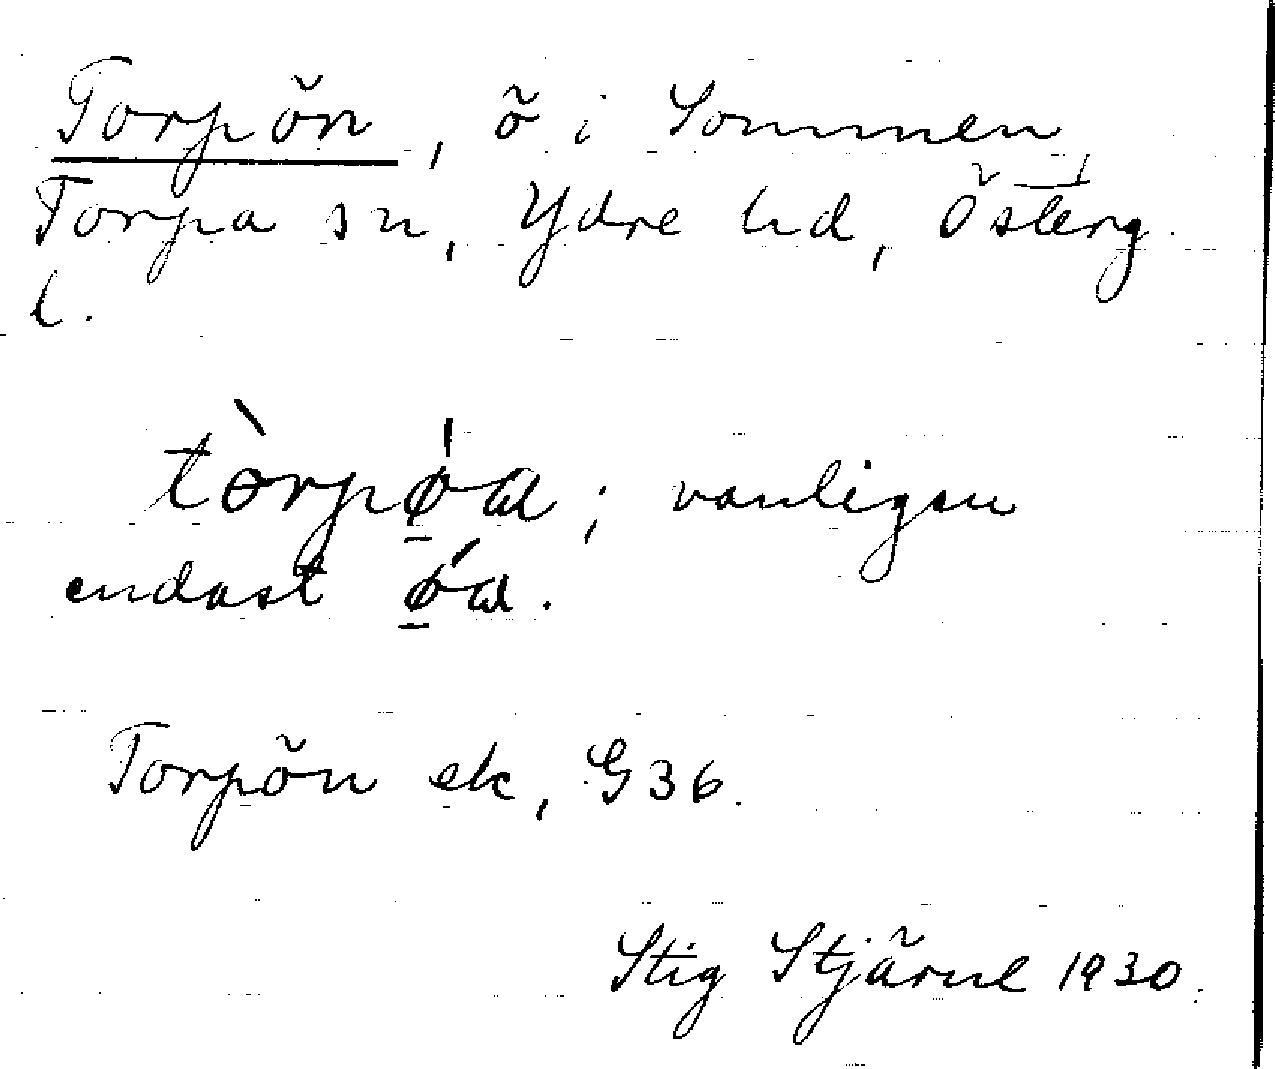 Torpön, ö i Sommen,
Torpa sn, Ydre hd, Österg.
l.
tòrpǿ̱a; vanligen
endast ǿ̱a.
Torpön ek, G36.
Stig Stjärne 1930.